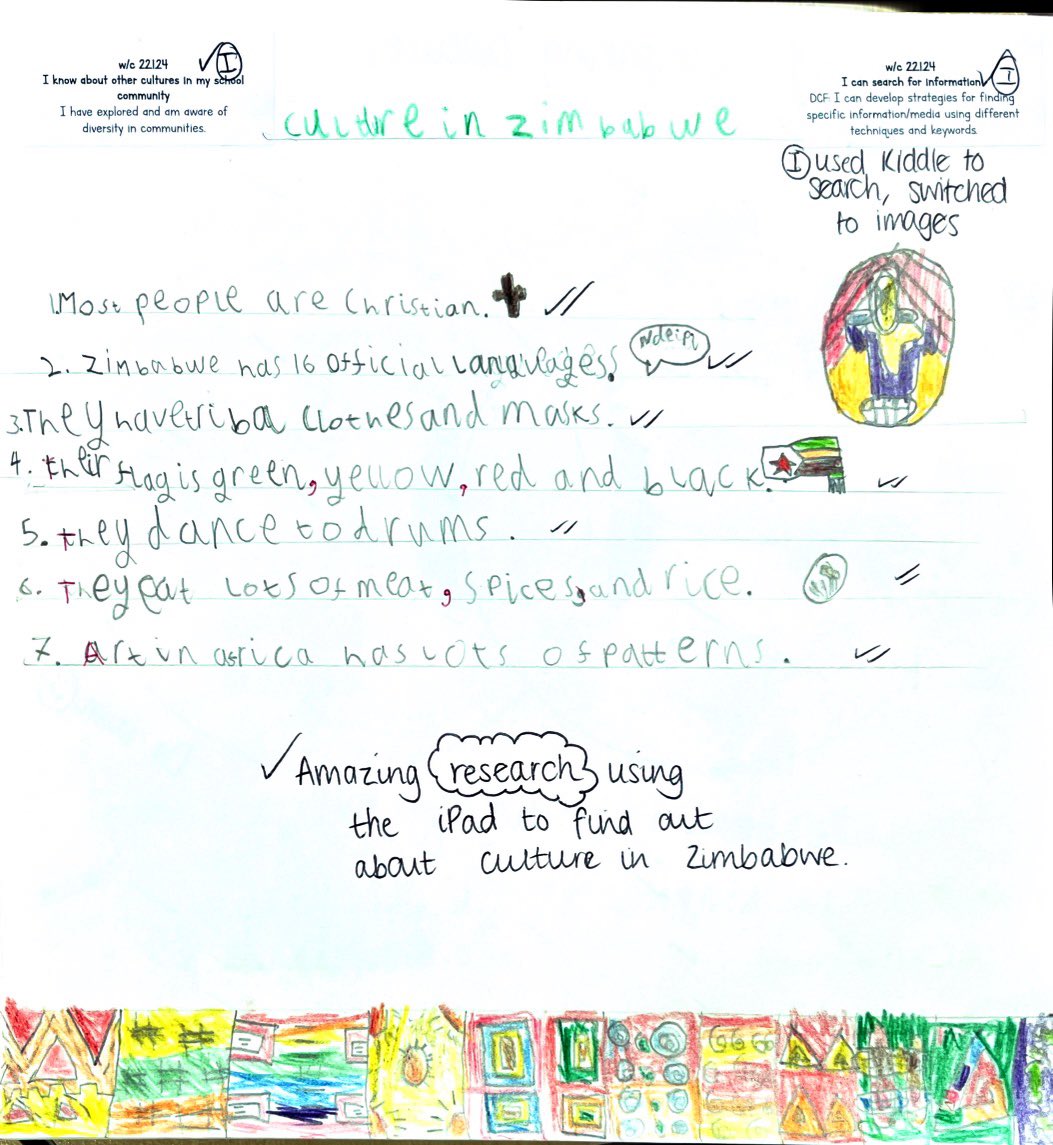 w/c 22.1.24
I know about other cultures in my school
community
I have explored and am aware of
diversity in communities.
I
culture in zimbabwe
w/c 22.1.24
I can search for information
DCF: I can develop strategies for finding
specific information/media using different
techniques and keywords.
I
I used Kiddle to
search, switched
to images
1. Most people are Christian.
2. Zimbabwe has 16 Official Languages.
Ndeipi
3. They have triba clothes and masks.
4. their flag is green, yellow, red and black.
5. they dance to drums.
6. They eat Lots of meat, spices, and rice.
7. Art in africa has lots of patterns.
Amazing research using
the iPad to find out
about culture in Zimbabwe.